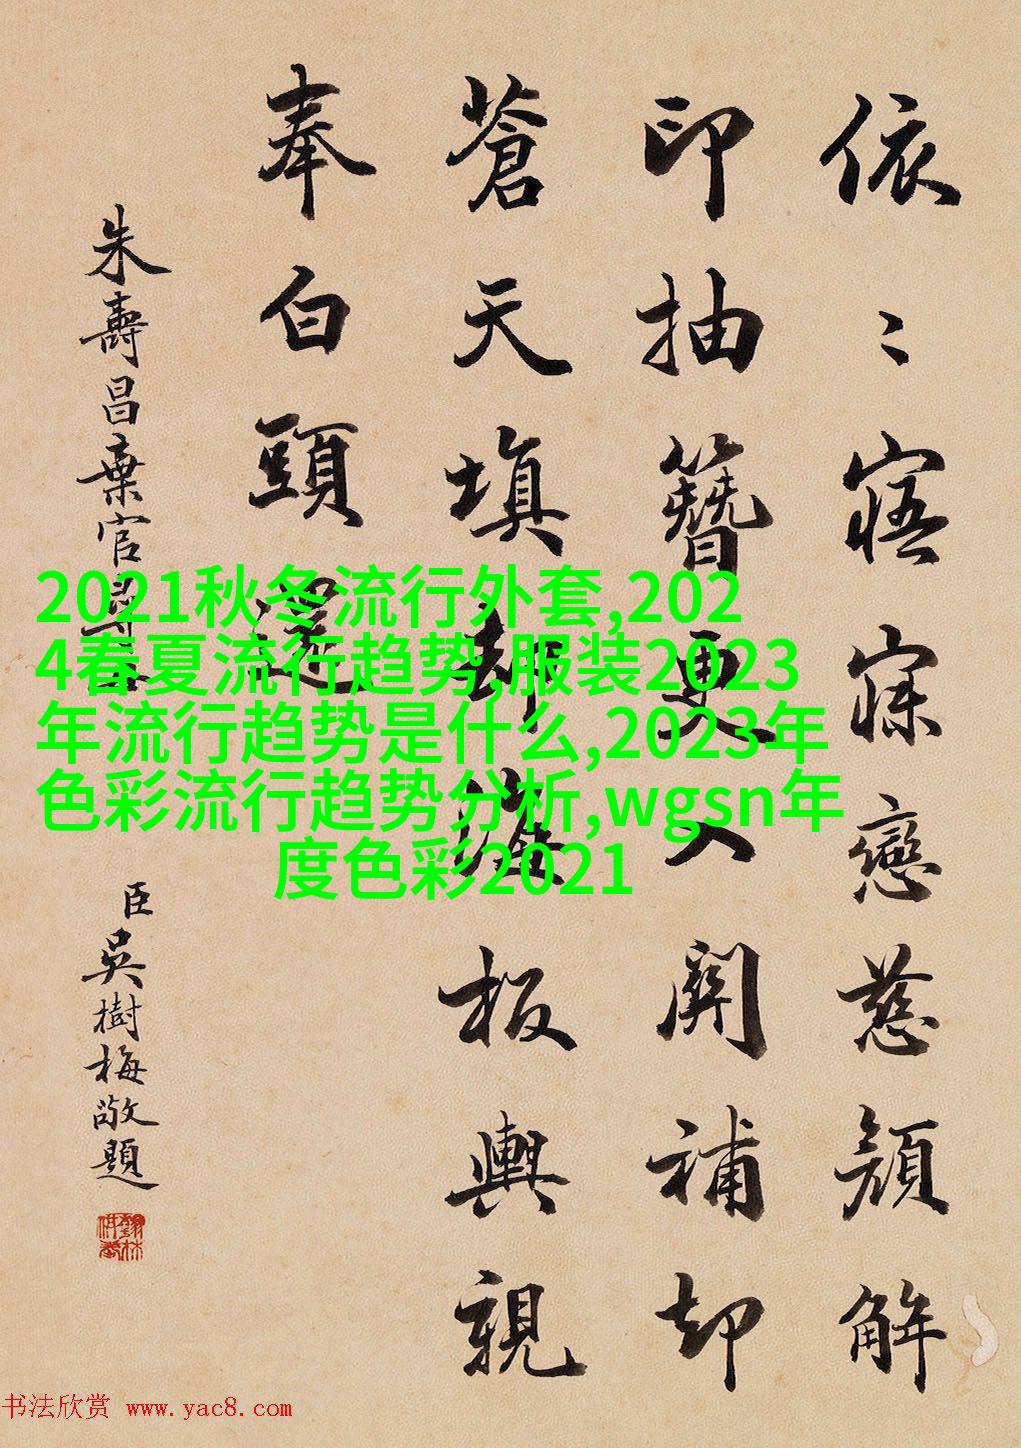 依〻寤寐戀慈顏解
印抽簪更入關補却
蒼天填却海板輿親
奉白頭還
朱壽昌棄官尋母
臣吳樹梅敬題
2021秋冬流行外套,202
4春夏流行趋势,服装2023
年流行趋势是什么,2023年
色彩流行趋势分析,wgsn年
度色彩2021
书法欣赏 www.yac8.com